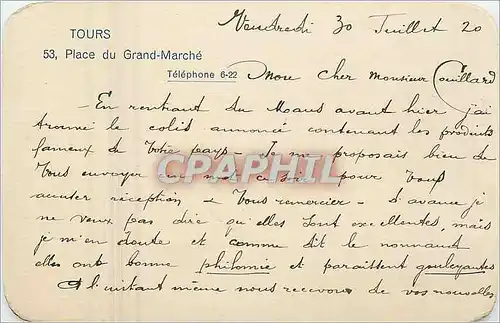 Vendredi 30 Juillet 20
TOURS
53, Place du Grand-Marché
Téléphone 6-22
Mon cher Monsieur Couillard
- En rentrant du Mans avant hier j'ai
trouvé le colis annoncé contenant les produits
fameux de Votre pays - Je me proposais bien de
Vous envoyer un mot ce soir pour Vous
accuser réception & Vous remercier - D'avance je
ne veux pas dire qu'elles sont excellentes, mais
je m'en doute et comme dit le normand
elles ont bonne philomie et paraissent gouleyantes
A l'instant même nous recevons de vos nouvelles
CPAPHIL